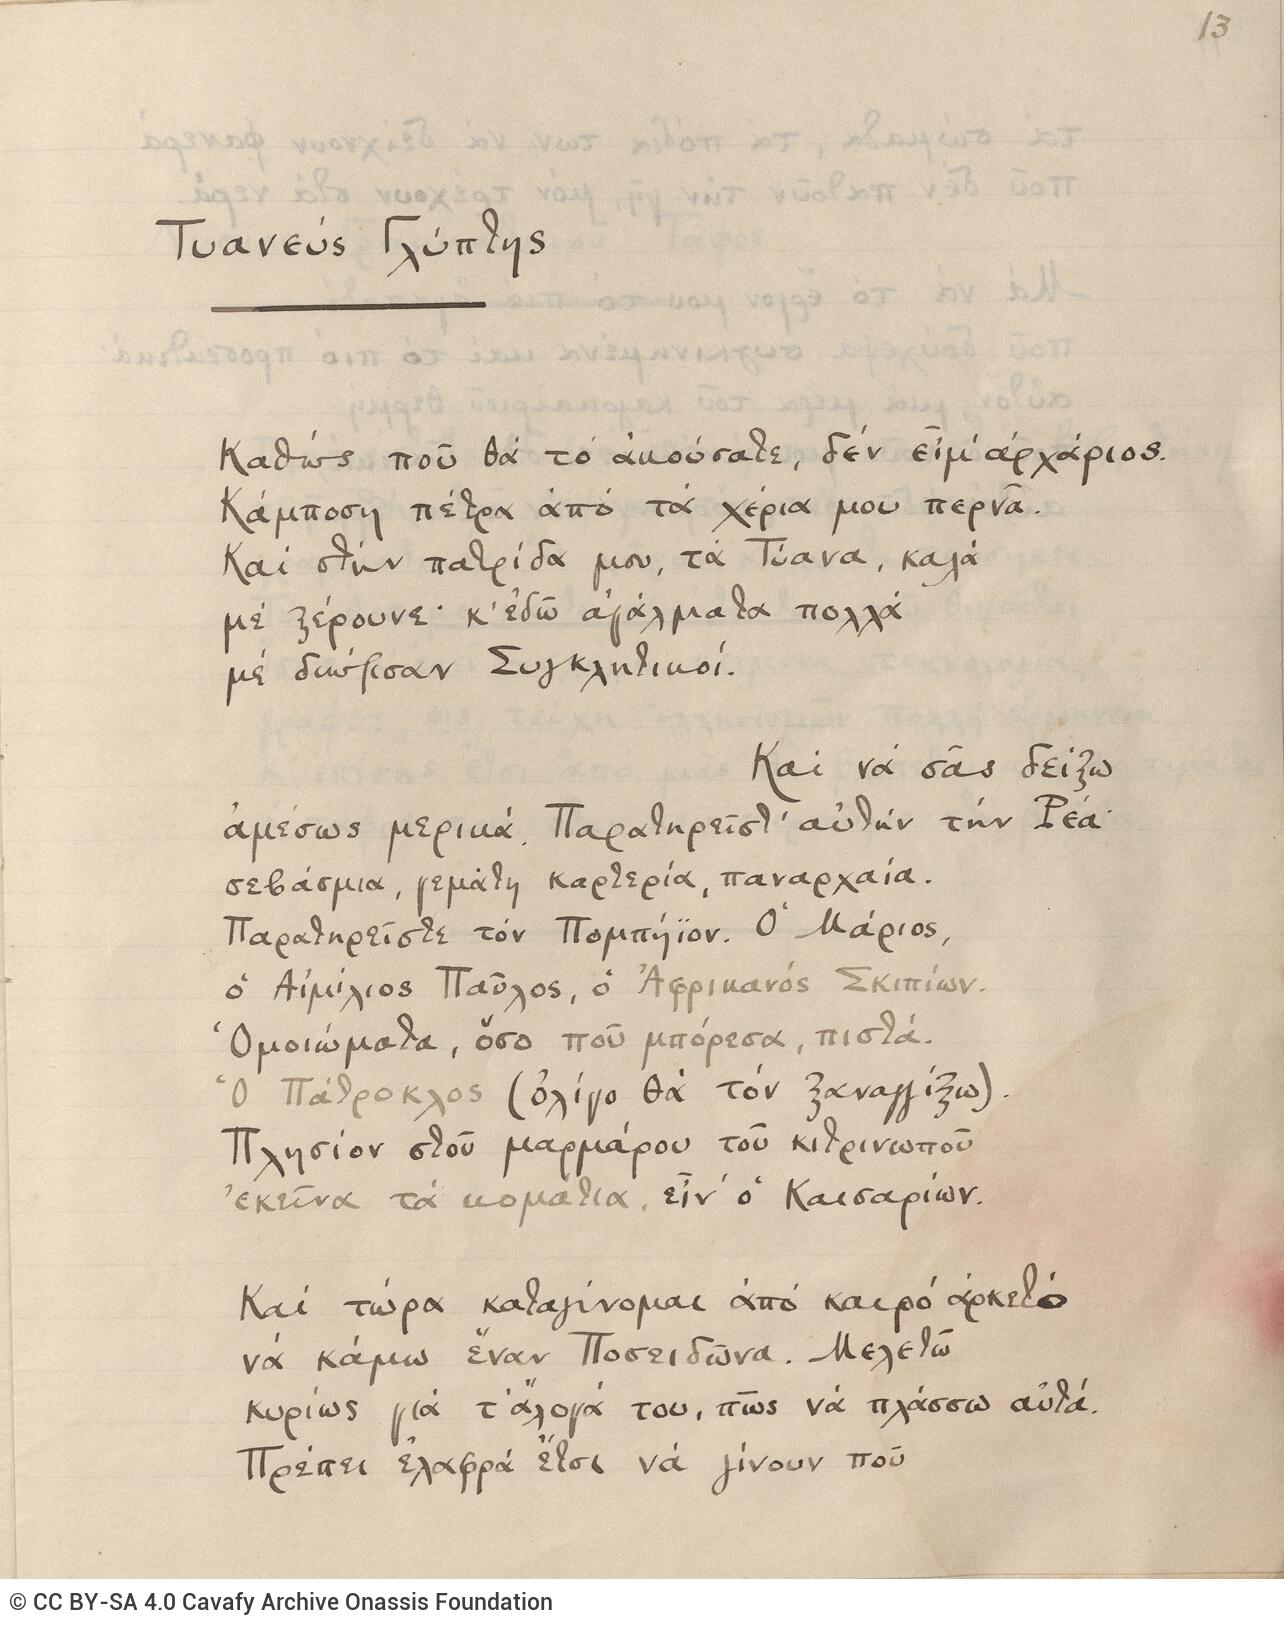 13
Τυανεύς Γλύπτης
Καθώς ποῦ θά τό ἀκούσατε, δέν εἶμ' ἀρχάριος.
Κάμποση πέτρα ἀπό τά χέρια μου περνᾶ.
Καί στήν πατρίδα μου, τά Τύανα, καλά
μέ ξέρουνε· κ' ἐδῶ ἀγάλματα πολλά
μέ διώρισαν Συγκλητικοί.
Καί νά σᾶς δείξω
ἀμέσως μερικά. Παρατηρεῖστ' αὐτήν τήν Ρέα·
σεβάσμια, γεμάτη καρτερία, παναρχαία.
Παρατηρεῖστε τόν Πομπήϊον. Ὁ Μάριος,
ὁ Αἰμίλιος Παῦλος, ὁ Ἀφρικανός Σκιπίων.
Ὁμοιώματα, ὅσο ποῦ μπόρεσα, πιστά.
Ὁ Πάτροκλος (ὀλίγο θά τόν ξαναγγίξω).
Πλησίον στοῦ μαρμάρου τοῦ κιτρινωποῦ
ἐκεῖνα τά κομάτια, εἶν' ὁ Καισαρίων.
Καί τώρα καταγίνομαι ἀπό καιρό ἀρκετό
νά κάμω ἕναν Ποσειδῶνα. Μελετῶ
κυρίως γιά τ' ἄλογά του, πῶς νά πλάσσω αὐτά.
Πρέπει ἐλαφρά ἔτσι νά γίνουν ποῦ
© CC BY-SA 4.0 Cavafy Archive Onassis Foundation